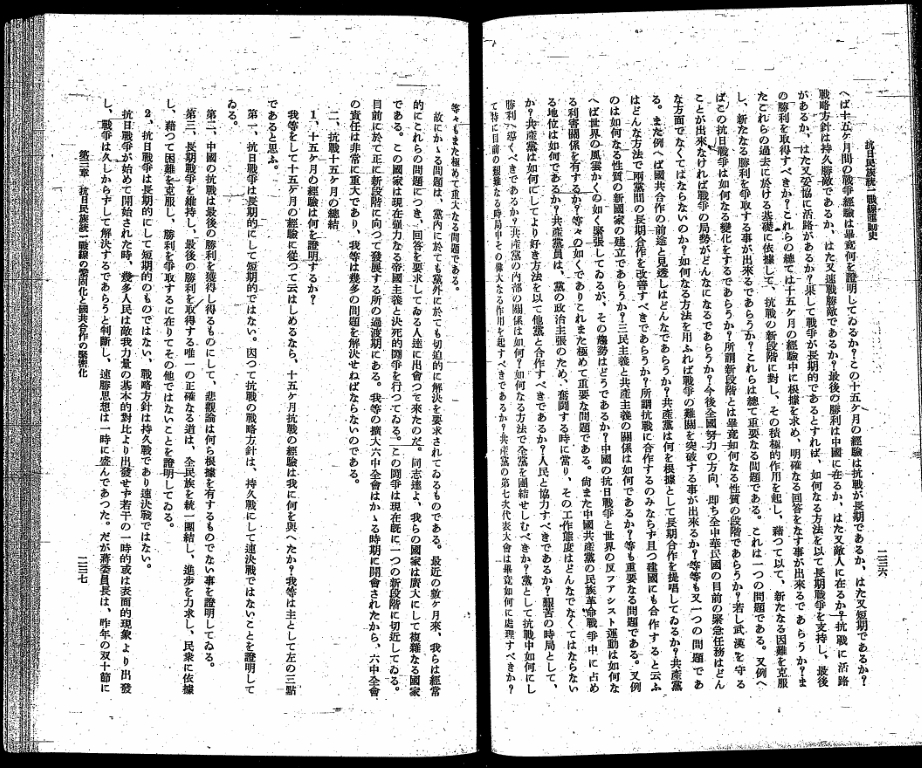 抗日民族統一戰線運動史
二三六
へば十五ケ月間の戰爭經驗は畢竟何を證明してゐるか？この十五ケ月の經驗は抗戰が長期であるか、はた又短期であるか？
戰略方針は持久勝敵であるか、はた又速戰勝敵であるか？最後の勝利は中國に在るか、はた又敵人に在るか？抗戰に活路
があるか、はた又妥協に活路があるか？果して戰爭が長期的であるとすれば、如何なる方法を以て長期戰爭を支持し、最後
の勝利を取得すべきか？これらの總ては十五ケ月の經驗中に根據を求め、明確なる回答をなす事が出來るであらうか？ま
たこれらの過去に於ける基礎に依據して、抗戰の新段階に對し、その積極的作用を起し、藉つて以て、新たなる因難を克服
し、新たなる勝利を爭取する事が出來るであらうか？これらは總て重要なる問題である。これは一つの問題である。又例へ
ばこの抗日戰爭は如何なる變化をするであらうか？所謂新段階とは畢竟如何なる性質の段階であらうか？若し武漢を守る
ことが出來なければ戰爭の局勢がどんなになるであらうか？今後全國努力の方向、即ち全中華民國の目前の緊急任務はどん
な方面でなくてはならないのか？如何なる方法を用ふれば戰爭の難關を突破する事が出來るか？等等も又一つの問題であ
る。また例へば國共合作の前途と見透しはどんなであらうか？共產黨は何を根據として長期合作を提唱してゐるか？共產黨
はどんな方法で兩黨間の長期合作を改善すべきであらうか？所謂抗戰に合作するのみならず且つ建國にも合作すると云ふ
のは如何なる性質の新國家の建立であらうか？三民主義と共產主義の關係は如何であるか？等も重要なる問題である。又例
へば世界の風雲かくの如く緊張してゐるが、その趨勢はどうであるか？中國の抗日戰爭と世界の反フアシスト運動は如何な
る利害關係を有するか？等々の如くでありこれまた極めて重要な問題である。尙また中國共產黨の民族革命戰爭中に占め
る地位は如何であるか？共產黨員は、黨の政治主張のため、奮鬪する時に當り、その工作態度はどんなでなくてはならない
か？共產黨は如何にしてより好き方法を以て他黨と合作すべきであるか？人民と協力すべきであるか？艱苦の時局として、
勝利へ導くべきであるか？共產黨の內部の關係は如何？如何なる方法で全黨を團結せしむべきか？黨として抗戰中如何にし
て特に目前の艱難なる時局中その偉大なる作用を起すべきであるか？共產黨の第七次代表大會は畢竟如何に處理すべきか？
等々もまた極めて重大なる問題である。
故にかゝる問題は、黨內に於ても黨外に於ても切迫的に解決を要求されてゐるものである。最近の數ケ月來、我らは經常
的にこれらの問題につき、回答を要求してゐる人達に出會つて來たのだ。同志達よ、我らの國家は廣大にして複雜なる國家
である。この國家は現在强力なる帝國主義と決死的鬪爭を行つてゐる。この鬪爭は現在旣に一つの新段階に切近してゐる。
目前に於て正に新段階に向つて發展する所の過渡期にある。我等の擴大六中全會はかゝる時期に開會されたから、六中全會
の責任は非常に重大であり、我等は幾多の問題を解決せねばならないのである。
二、抗戰十五ケ月の總結
1、十五ケ月の經驗は何を證明するか？
我等をして十五ケ月の經驗に從つて云はしめるなら、十五ケ月抗戰の經驗は我に何を與へたか？我等は主として左の三點
であると思ふ。
第一、抗日戰爭は長期的にして短期的ではない。因つて抗戰の戰略方針は、持久戰にして速決戰ではないことを證明して
ゐる。
第二、中國の抗戰は最後の勝利を獲得し得るものにして、悲觀論は何ら根據を有するものでない事を證明してゐる。
第三、長期戰爭を維持し、最後の勝利を取得する唯一の正確なる道は、全民族を統一團結し、進步を力求し、民衆に依據
し、藉つて困難を克服し、勝利を爭取するに在りてその他ではないことを證明してゐる。
2、抗日戰爭は長期的にして短期的のものではない、戰略方針は持久戰であり速決戰ではない。
抗日戰爭が始めて開始された時、幾多人民は敵我力量の基本的對比より出發せず若干の一時的或は表面的現象より出發
し、戰爭は久しからずして解決するであらうと判斷し、速勝思想は一時に盛んであつた。だが蔣委員長は、昨年の双十節に
第三章　抗日民族統一戰線の鞏固化と國共合作の緊密化
二三七